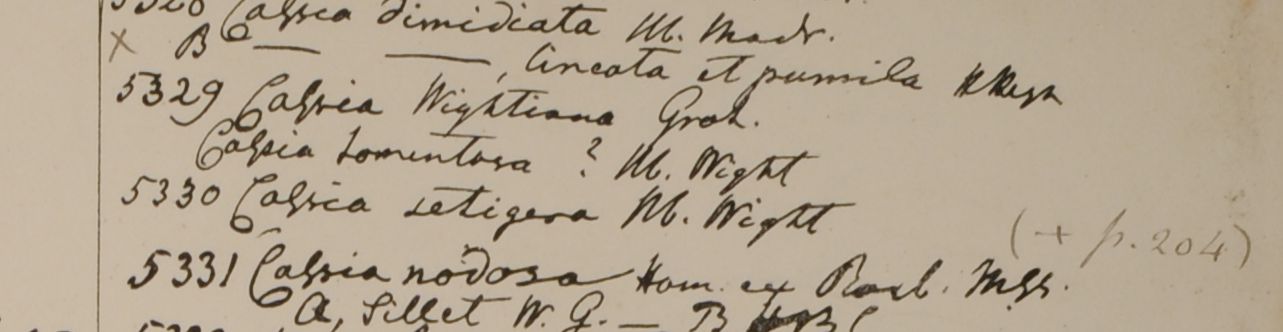 Cassia dimidiata H. Madr.
× B — —, lineata et pumila
5329 Cassia Wightiana Grah.
Cassia tomentosa ? H. Wight
5330 Cassia setigera H. Wight
(+ p. 204)
5331 Cassia nodosa Ham. ex Roxb. Mss.
a, Sillet W. G. — B